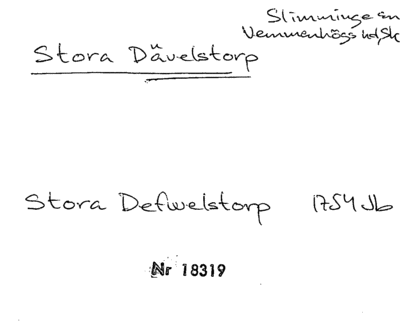 Slimminge sn
Vemmenhögs hd, Sk
Stora Dävelstorp
Stora Defwelstorp 1754 Jb
Nr 18319